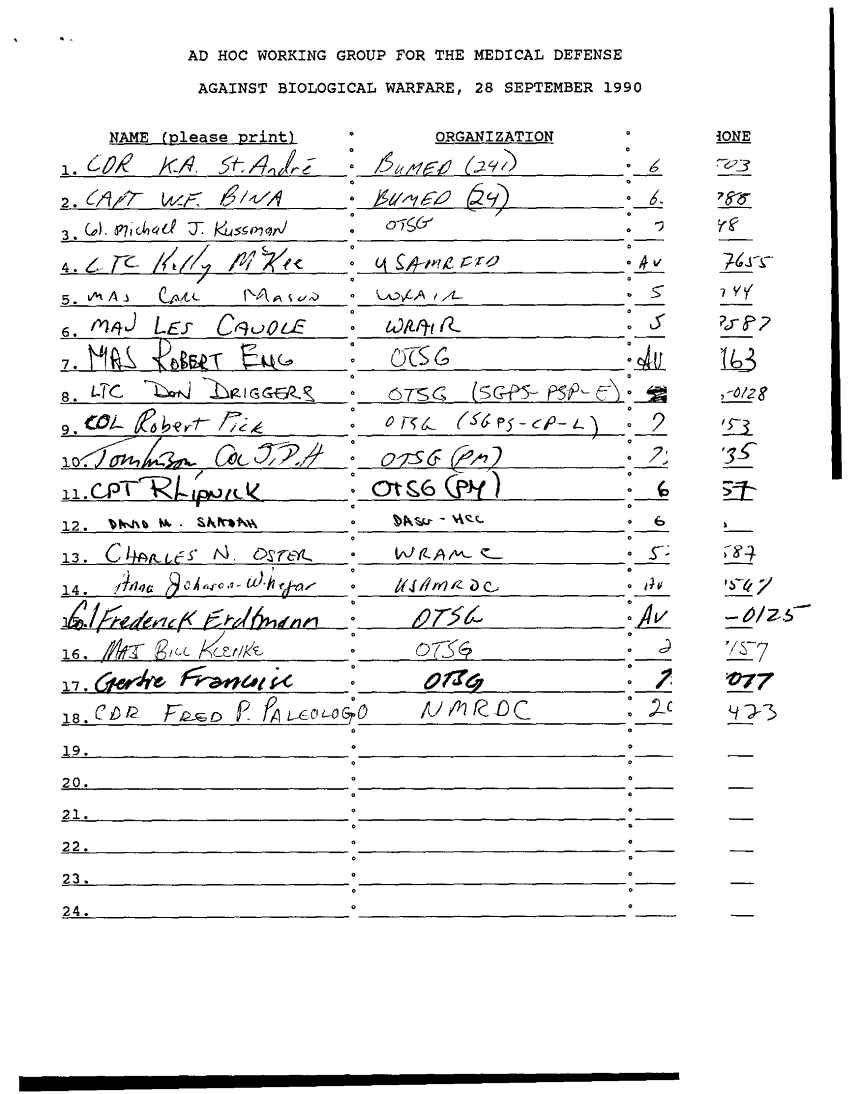 AD HOC WORKING GROUP FOR THE MEDICAL DEFENSE
AGAINST BIOLOGICAL WARFARE, 28 SEPTEMBER 1990
NAME (please print) ORGANIZATION HONE
1. CDR K.A. St. André BUMED (241) 6 503
2. CAPT W.F. BINA BUMED (24) 6. 788
3. Michael J. Kussman OTSG 48
4. LTC Kelly McKee USAMRIID AV 7655
5. MAJ Carl Mason WRAIR 5 744
6. MAJ LES CAUDLE WRAIR 5 587
7. MAJ ROBERT ENG OTSG AV 163
8. LTC DON DRIGGERS OTSG (SGPS-PSP-E) -0128
9. COL Robert Pick OTSG (SGPS-CP-L) 7 53
10. Tomlinson, Col J.P.H OTSG (PM) 7 35
11. CPT R Lipnick OTSG (PM) 6 57
12. DAVID M. SAADAH DASG-HCC 6
13. CHARLES N. OSTER WRAMC 5 587
14. Anna Johnson-Winegar USAMRDC AV 567
15. Col Frederick Erdtmann OTSG AV -0125
16. MAJ BILL KLENKE OTSG 2 157
17. Gertie Francoise OTSG 7 077
18. CDR FRED P. PALEOLOGO NMRDC 20 423
19.
20.
21.
22.
23.
24.